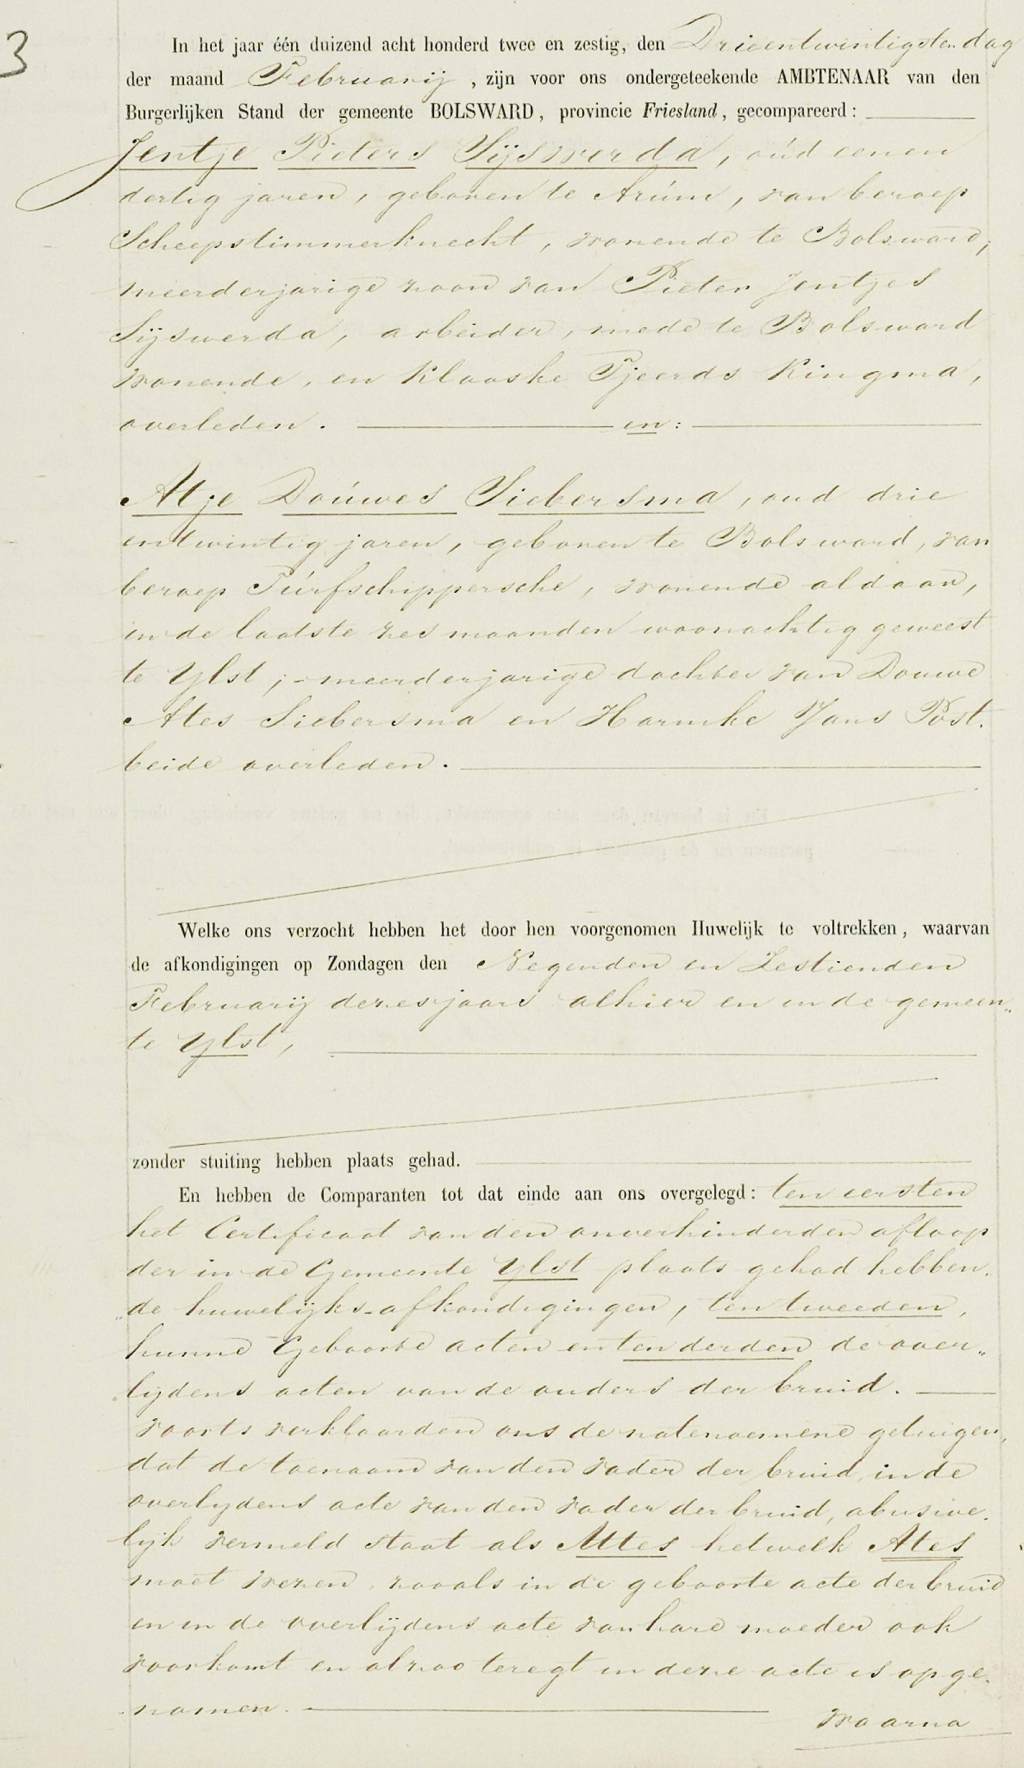 3
In het jaar één duizend acht honderd twee en zestig, den Drieentwintigsten dag
der maand Februarij, zijn voor ons ondergeteekende AMBTENAAR van den
Burgerlijken Stand der gemeente BOLSWARD, provincie Friesland, gecompareerd:
Jentje Pieters Sijswerda, oud eenen
dertig jaren, geboren te Arum, van beroep
Scheepstimmerknecht, wonende te Bolsward,
meerderjarige zoon van Pieter Jentjes
Sijswerda, arbeider, mede te Bolsward
wonende, en Klaaske Tjeerds Kingma,
overleden. en:
Atje Douwes Siebersma, oud drie
entwintig jaren, geboren te Bolsward, van
beroep Turfschippersche, wonende aldaar,
in de laatste zes maanden woonachtig geweest
te Ylst; meerderjarige dochter van Douwe
Ates Siebersma en Harmke Jans Post.
beide overleden.
Welke ons verzocht hebben het door hen voorgenomen Huwelijk te voltrekken, waarvan
de afkondigingen op Zondagen den Negenden en Zestienden
Februarij dezes jaars alhier en in de gemeen„
te Ylst,
zonder stuiting hebben plaats gehad.
En hebben de Comparanten tot dat einde aan ons overgelegd: ten eersten
het Certificaat van den onverhinderden afloop
der in de Gemeente Ylst plaats gehad hebben„
de huwelijks-afkondigingen, ten tweeden,
hunne Geboorte acten en ten derden de over„
lijdens acten van de ouders der bruid.
voorts verklaarden ons de natenoemene getuigen,
dat de toenaam van den vader der bruid, in de
overlijdens acte van den vader der bruid, abusive„
lijk vermeld staat als Attes hetwelk Ates
moet wezen, zooals in de geboorte acte der bruid
en in de overlijdens acte van hare moeder ook
voorkomt en alzoo teregt in deze acte is opge„
nomen.
waarna